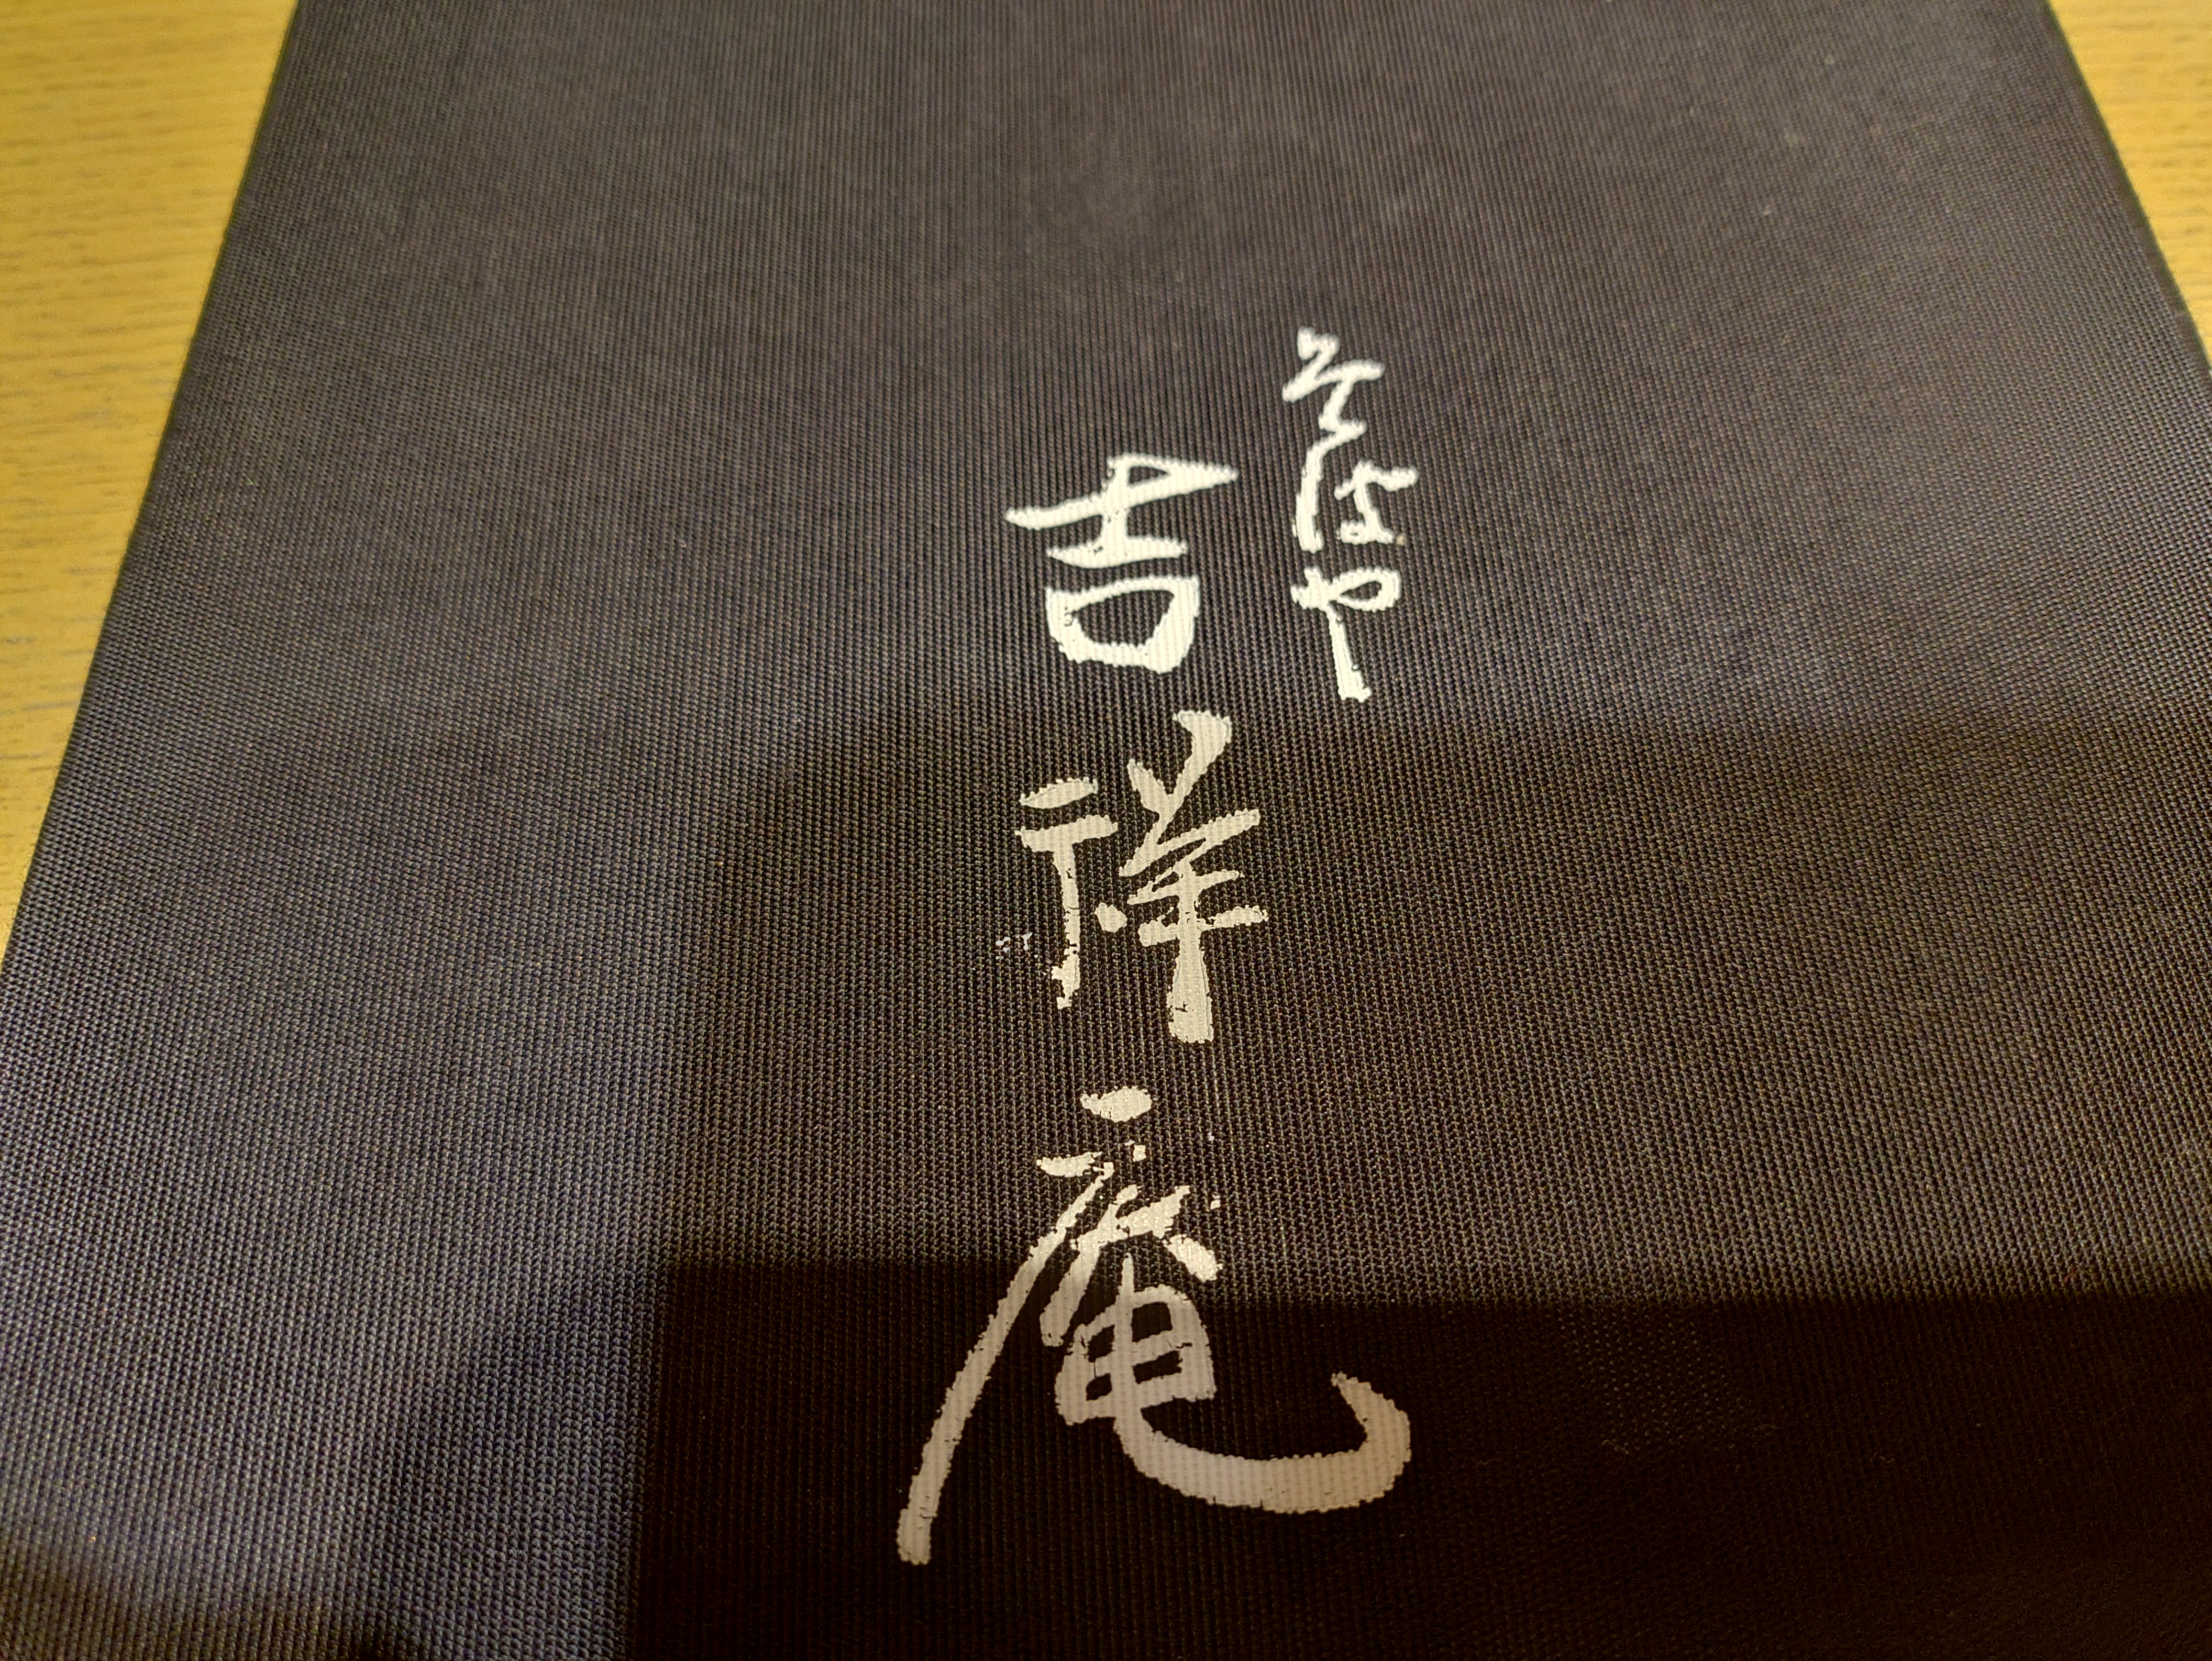 そばや
吉祥庵